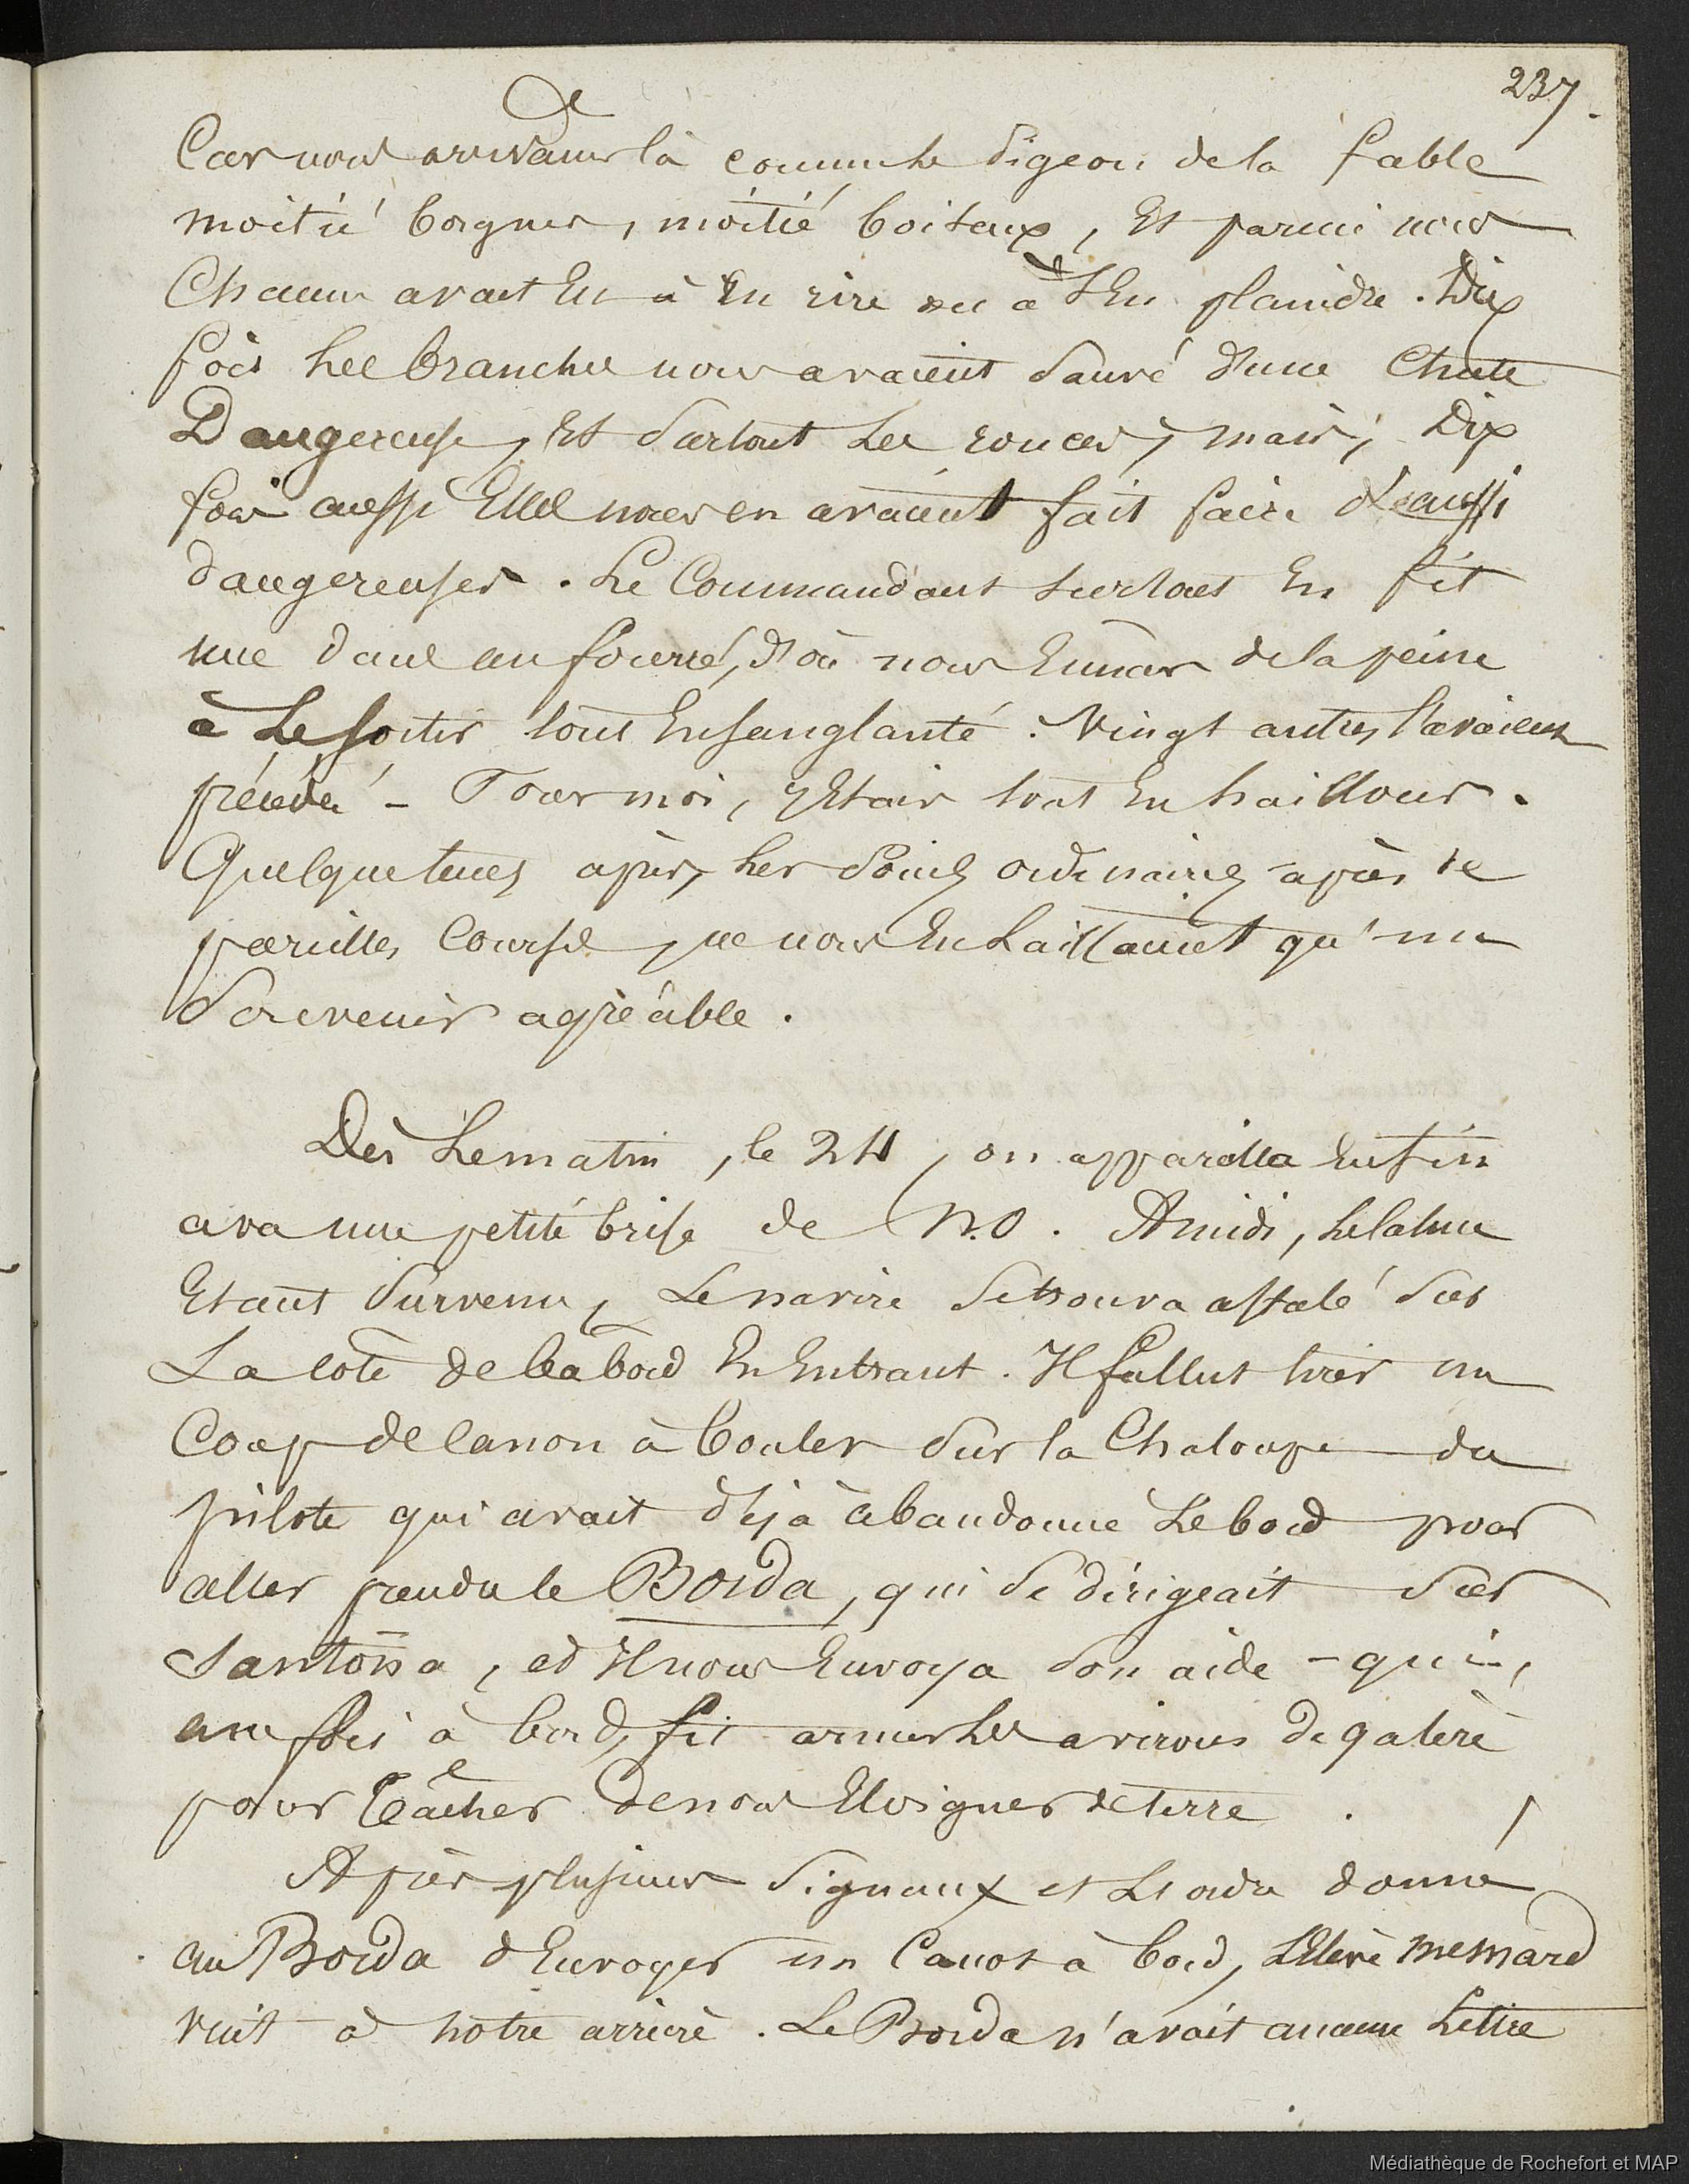 237.
Car nous arrivames là comme le Pigeon de la fable
moitié borgnes, moitié boiteux, Et parmi nous
Chacun avait Eu à En rire ou à s'En plaindre. Dix
fois Les branches nous avaient Sauvé d'une Chute
Dangereuse, Et Surtout Les ronces, mais, Dix
fois aussi Elles nous en avaient fait faire d'aussi
dangereuses. Le Commandant surtout En fit
une dans un fourré, d'où nous Eumes de la peine
à Le sortir tout Ensanglanté. Vingt autres l'avaient
précédé - Pour moi, j'Etais tout En haillons.
Quelque tems après, Les Soins ordinaires après de
pareilles Courses, ne nous En Laissaient qu'un
Souvenir agréable.
Dès Le matin, le 24, on appareilla Enfin
avec une petite brise de N.O. A midi, Le Calme
Etant Survenu, Le navire Se trouva affalé Sur
La côte de babord En Entrant. Il fallut tirer un
Coup de Canon à boulet Sur la Chaloupe du
pilote qui avait déjà abandonné Le bord pour
aller prendre le Borda, qui Se dirigeait Sur
Santoña, et Il nous Envoya Son aide - qui,
une fois à bord, fit armer Les avirons de galère
pour tâcher de nous Eloigner de terre.
Après plusieurs Signaux et L'ordre donné
au Borda d'Envoyer un Canot à bord, L'Elève mesnard
vint à notre arrière. Le Borda n'avait aucune Lettre
Médiathèque de Rochefort et MAP